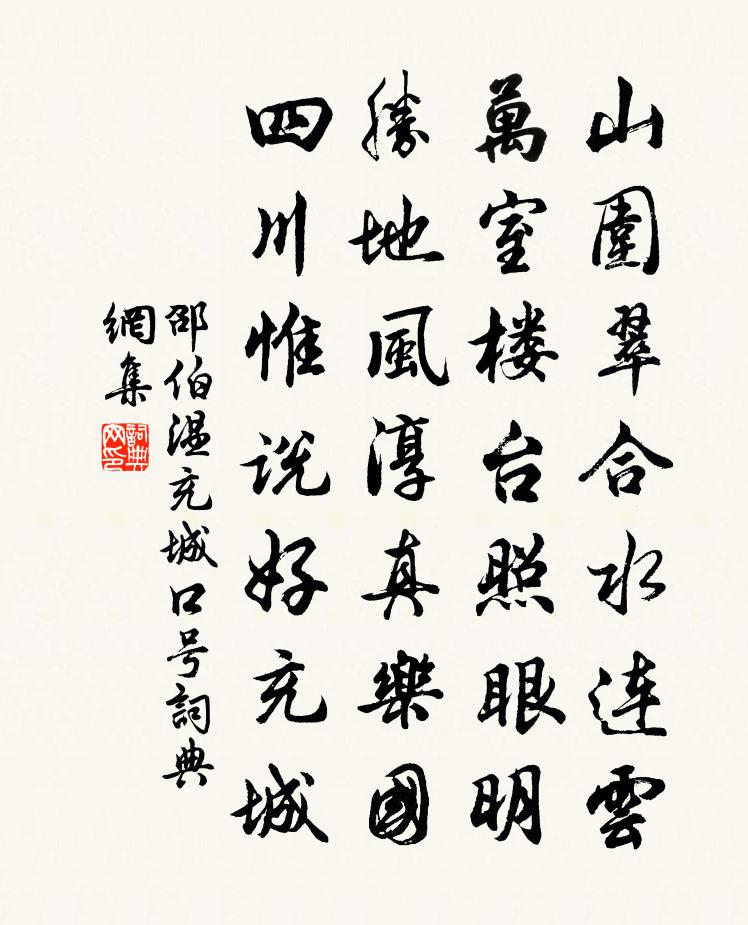 山圍翠合水連雲
萬室楼台照眼明
勝地風淳真樂國
四川惟说好充城
邵伯温充城口号詞典
網集
詞典網印